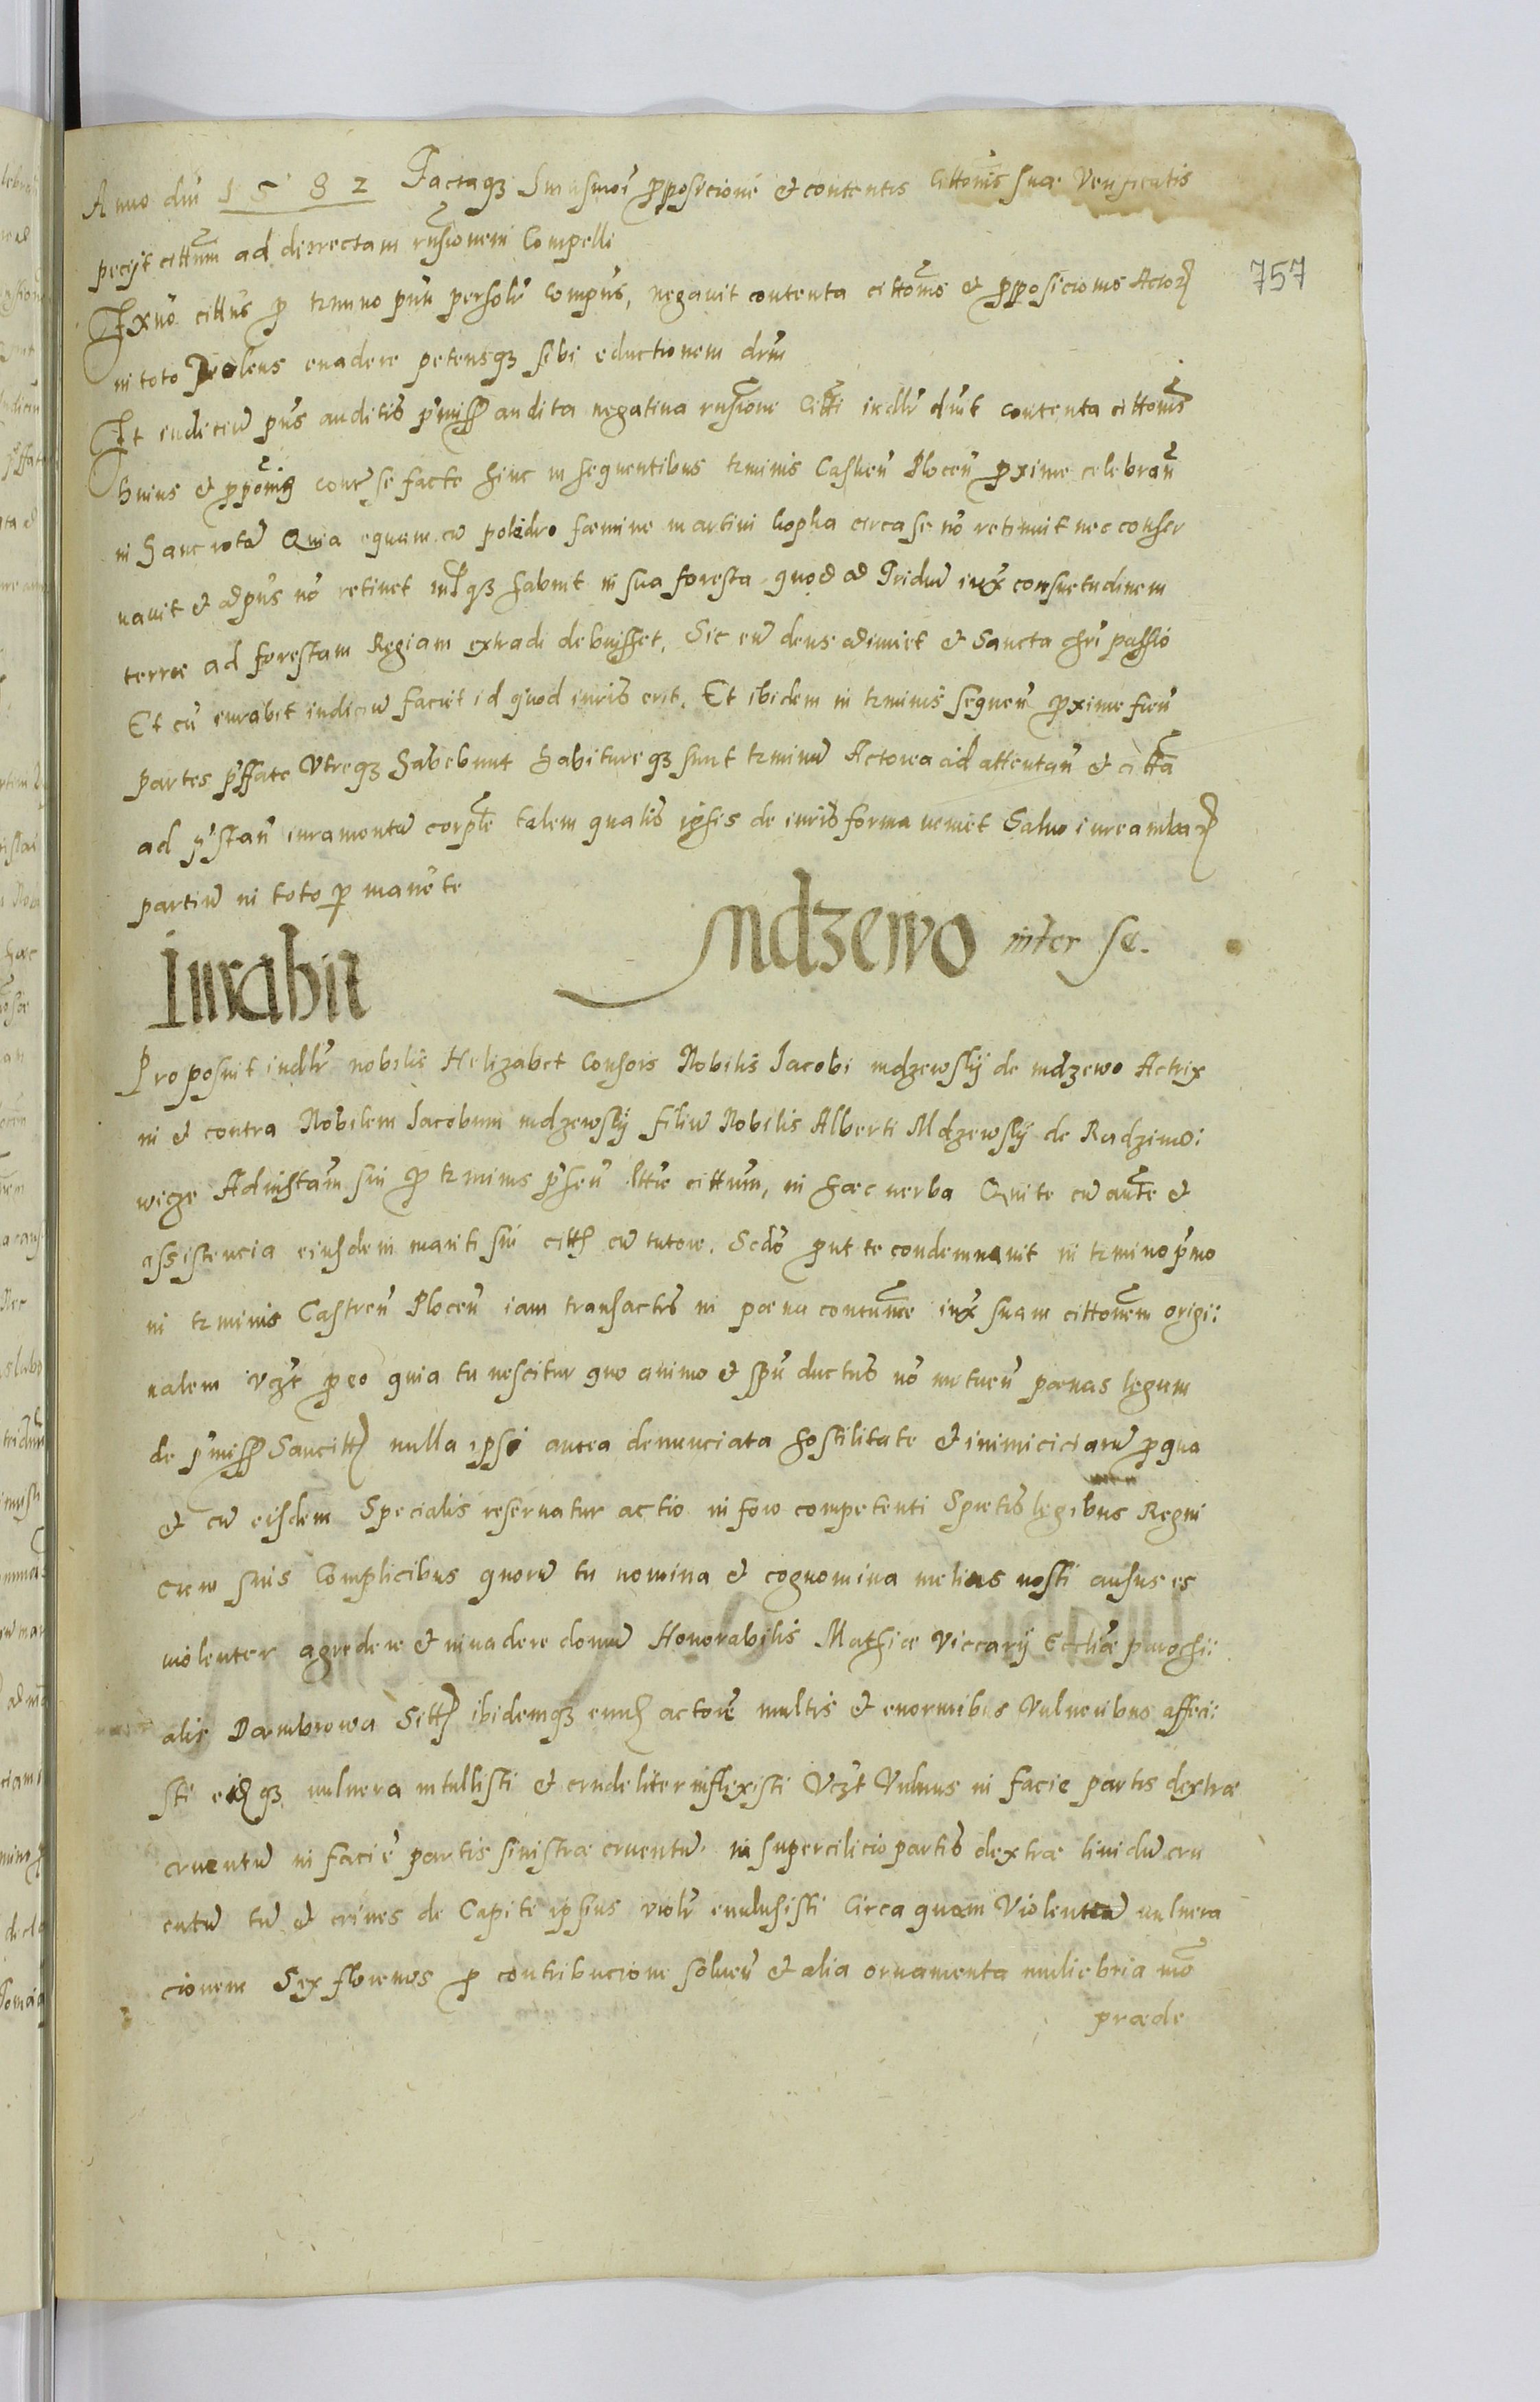 Anno dni 1582 Factaqz huiusmoi pposicione et contentis cittonis suae Verificatis
pecijt cittum ad derrectam rnsionem Compelli
Ex quo cittus p termino pnti personlr compns, negavit contenta cittonis et pposicionis Actor
in toto volens evadere petensqz sibi eductionem
Et iudicium pns auditis pmissis audita negativa rnsione Citti iudlr contenta cittonis
huius et pponis contra se facte hinc in sequentibus terminis Castren Plocen pxime celebran
in hanc rotam Quia equam cu poledro foemine martini circa se no retinuit nec conser
vavit et adpns no retinet habuit in sua foresta quod ad Triduum iux consuetudinem
terrae ad forestam Regiam extradi debuisset, Sic eum deus adiuvet et Sancta chri passio
Et cu iurabit iudicium faciet id quod iuris erit. Et ibidem in terminis sequen pxime fien
partes pffate Utreqz habebunt habitureqz sunt terminum Actorea ad attentan et citta
ad pstan iuramentum corple talem qualis ipsis de iuris forma veniet Salvo iure ambar
partium in toto p manente
Iurabit
Mdzewo inter se.
757
Proposuit iudlr nobilis Helizabet Consors Nobilis Jacobi mdzewskij de mdzewo Actrix
in et contra Nobilem Jacobum mdzewskij filium Nobilis Alberti Mdzewskij de Radzimoi
wicze Adinstam sui p terminis pnsen cittum, in haec verba Qui te cum aucte et
assistencia eiusdem mariti sui citt cum tutore. Secdo put te condemnavit in termino pmo
in terminis Castren Plocen iam transactis in poena contume iux suam cittonem origi:
nalem vzt p eo quia tu nescitur quo animo et spu ductus no metuen poenas legum
de pmiss Sancitt nulla ipsi antea denunciata hostilitate et inimiciciarum p qua
et cum eisdem Specialis reservatur actio in foro competenti Spretis legibus Regni
cum suis Complicibus quorum tu nomina et cognomina melius nosti ausus es
violenter agredere et invadere domum Honorabilis Mathiae Viccarij Eccliae parochi:
alis Dambrowa Sitt ibidemqz eand actore multis et enormibus Vulneribus affeci:
sti eidqz vulnera intullisti et crudeliter inflixisti Vzt Vulnus in facie partis dextrae
cruentum in facie partis sinistrae cruentum in supercilicio partis dextrae lividum cru
entum tum et crines de Capite ipsius violr evulsisti Circa quam Violentam vulnera
cionem Sex florenos p contribucione solven et alia ornamenta muliebria
praede